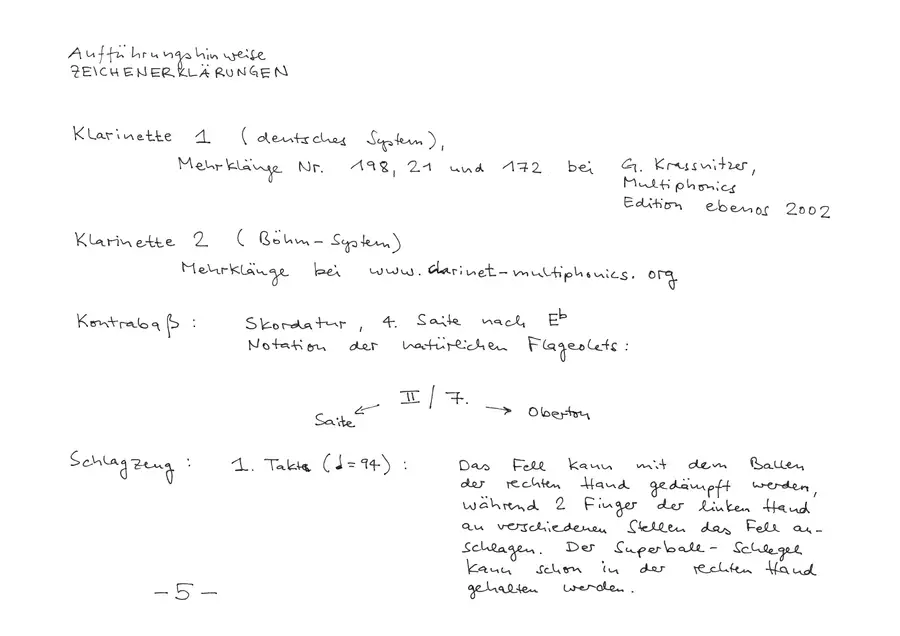 Aufführungshinweise
ZEICHENERKLÄRUNGEN
Klarinette 1 (deutsches System),
Mehrklänge Nr. 198, 21 und 172 bei G. Krassnitzer,
Multiphonics
Edition ebenos 2002
Klarinette 2 (Böhm-System)
Mehrklänge bei www.clarinet-multiphonics.org
Kontrabaß: Skordatur, 4. Saite nach E♭
Notation der natürlichen Flageolets:
II/7.
Saite ← → Oberton
Schlagzeug: 1. Takt (♩=94): Das Fell kann mit dem Ballen
der rechten Hand gedämpft werden,
während 2 Finger der linken Hand
an verschiedenen Stellen das Fell an-
schlagen. Der Superball-Schlegel
kann schon in der rechten Hand
gehalten werden.
-5-